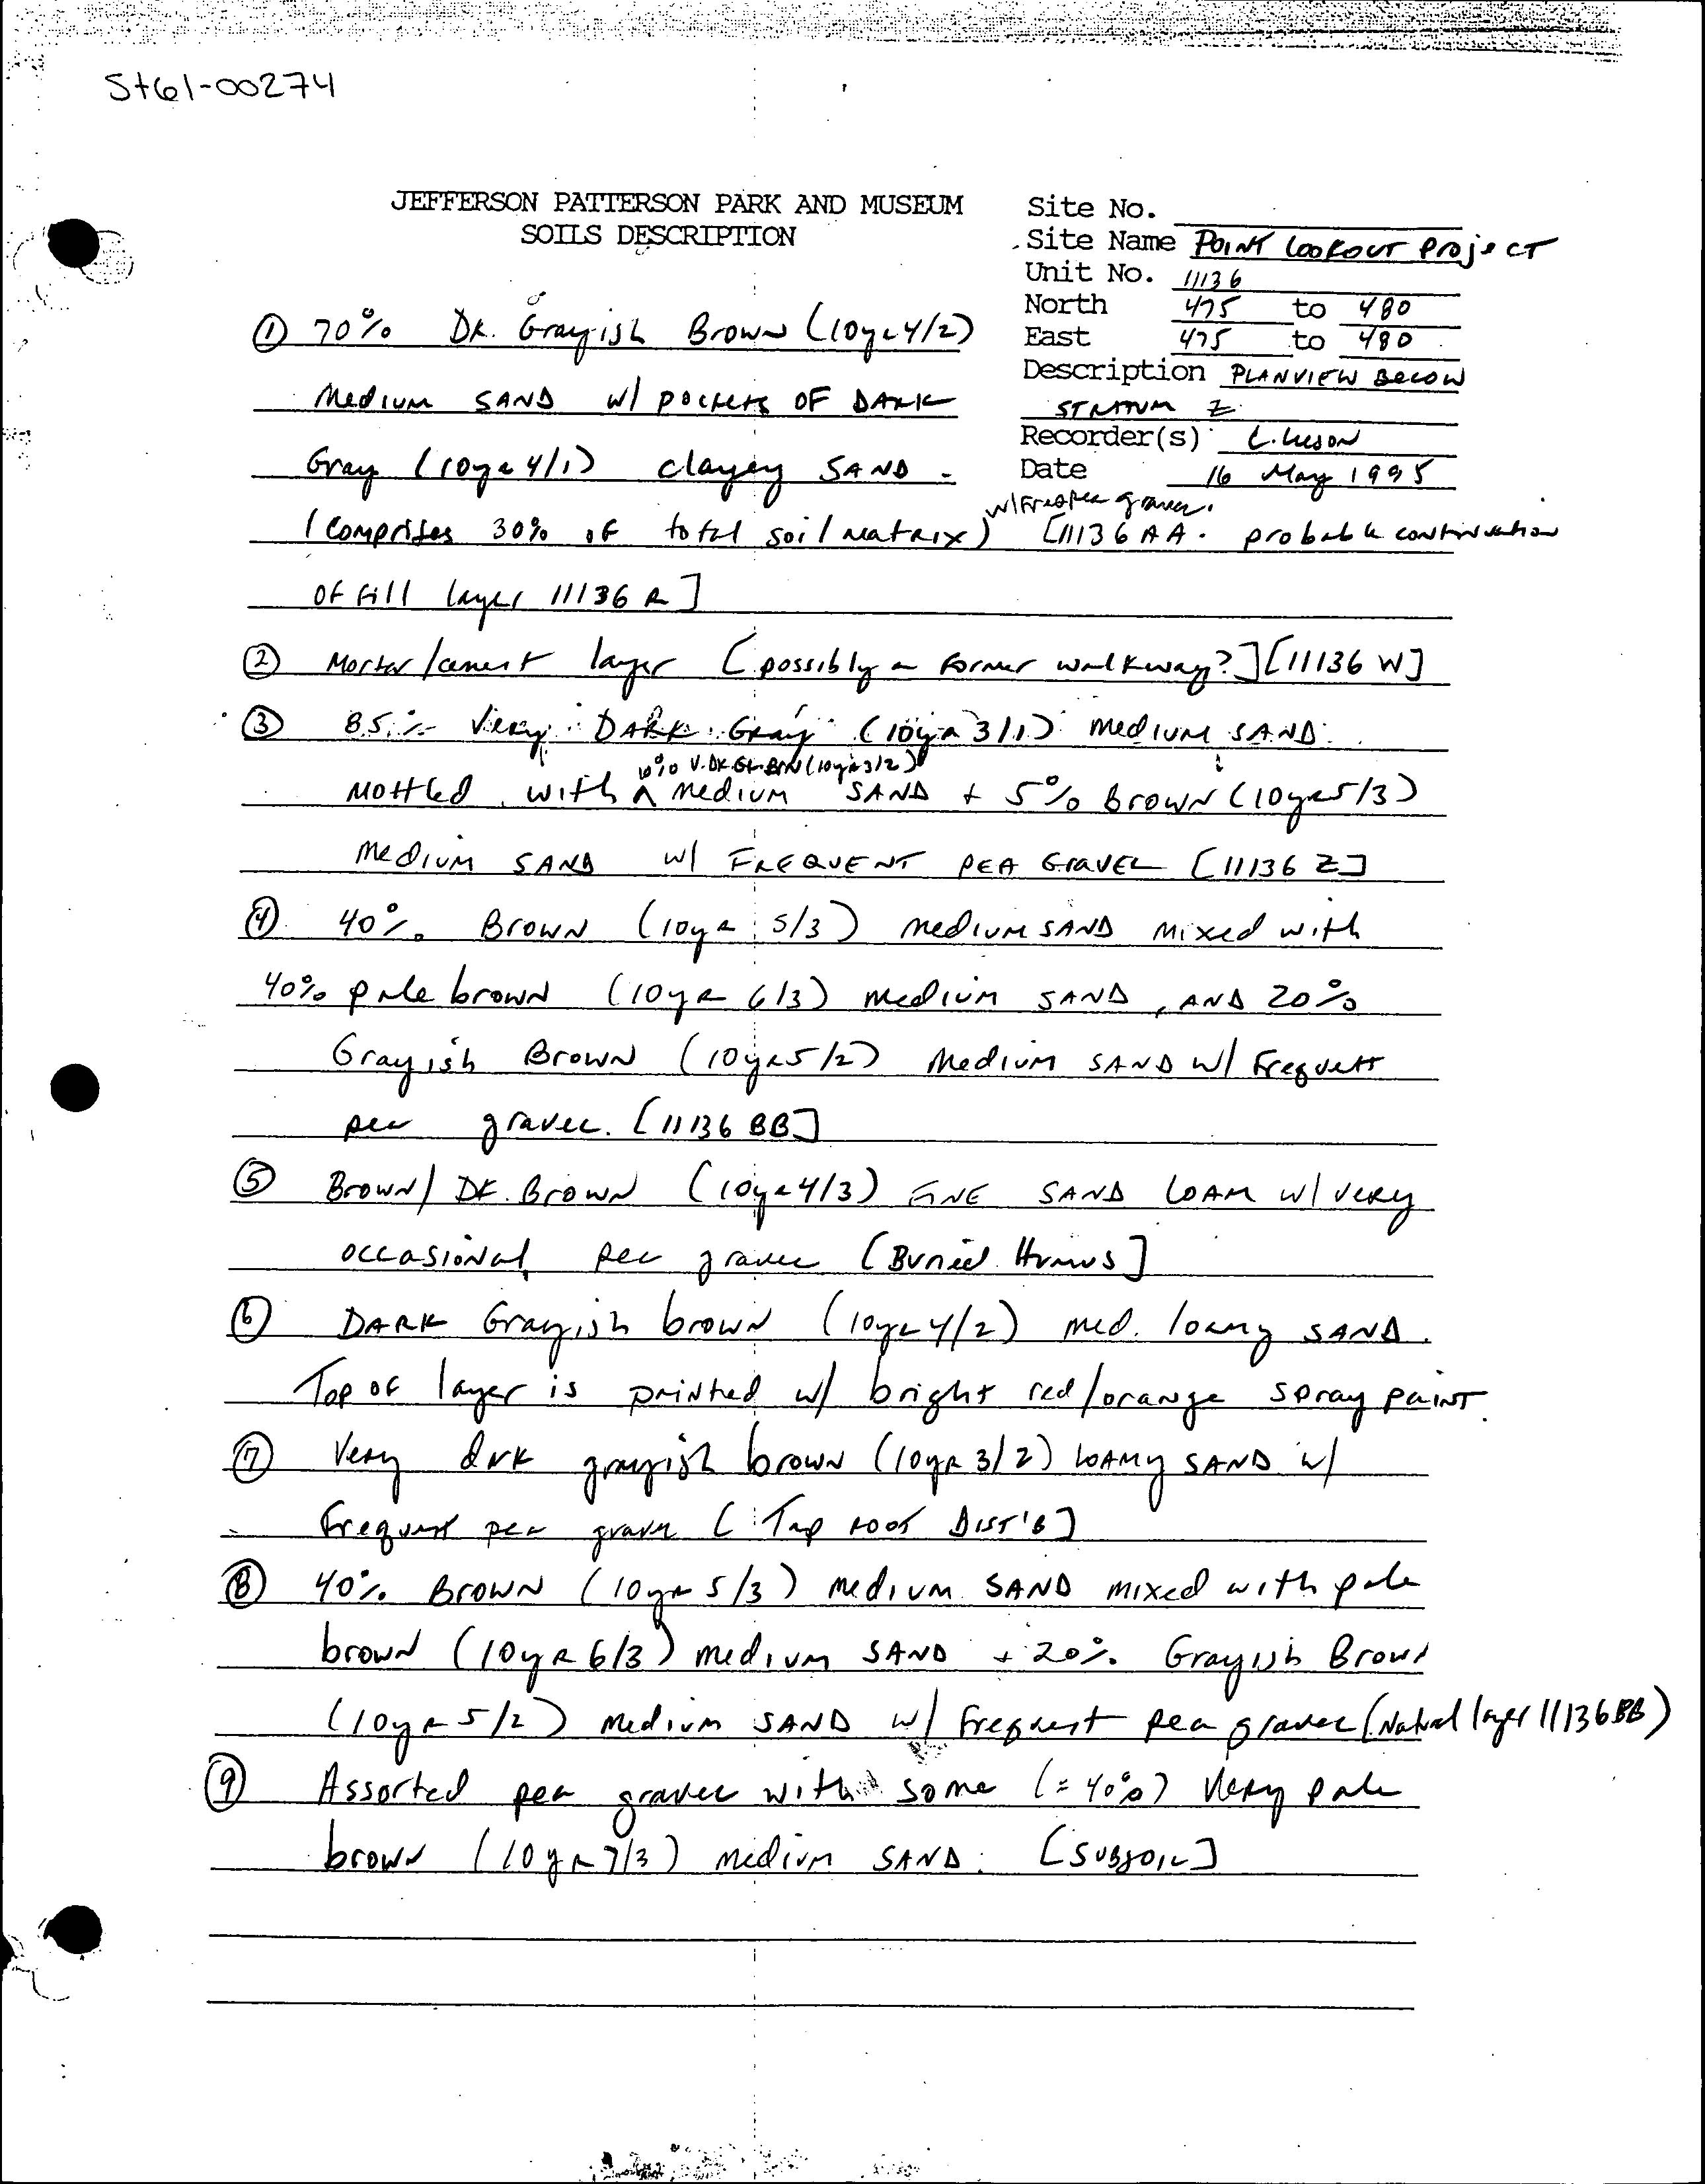 St61-00274
JEFFERSON PATTERSON PARK AND MUSEUM
SOILS DESCRIPTION
Site No.
Site Name POINT LOOKOUT PROJECT
Unit No. 11136
North 475 to 480
East 475 to 480
Description PLANVIEW BELOW
STRATUM Z
Recorder(s) L. Lieson
Date 16 May 1995
① 70% DK. Grayish Brown (10yr 4/2)
Medium SAND w/ pockets OF DARK
Gray (10yr 4/1) clayey SAND -
w/ Freq Pea gravel.
(comprises 30% of total soil matrix) [11136 AA. probable continuation
OF Fill layer 11136 R]
② Mortar/cement layer [possibly a former walkway?] [11136 W]
③ 85% Very DARK Gray (10yr 3/1) medium SAND
10% V. DK. Gr. BRN (10yr 3/2)
Mottled with ^ medium SAND + 5% Brown (10yr 5/3)
Medium SAND w/ FREQUENT PEA GRAVEL [11136 Z]
④ 40% Brown (10yr 5/3) medium SAND mixed with
40% pale brown (10yr 6/3) medium SAND, AND 20%
Grayish Brown (10yr 5/2) Medium SAND w/ Frequent
pea gravel. [11136 BB]
⑤ Brown/DK. Brown (10yr 4/3) FINE SAND LOAM w/ very
occasional pea gravel [Buried Humus]
⑥ DARK Grayish brown (10yr 4/2) med. loamy SAND.
Top of layer is painted w/ bright red/orange spray paint.
⑦ Very drk grayish brown (10yr 3/2) LOAMY SAND w/
Frequent pea gravel [Tap root DIST'B]
⑧ 40% Brown (10yr 5/3) medium SAND mixed with pale
brown (10yr 6/3) medium SAND + 20% Grayish Brown
(10yr 5/2) medium SAND w/ Frequent pea gravel (Natural layer 11136BB)
⑨ Assorted pea gravel with some (= 40%) Very pale
brown (10yr 7/3) medium SAND. [SUBSOIL]